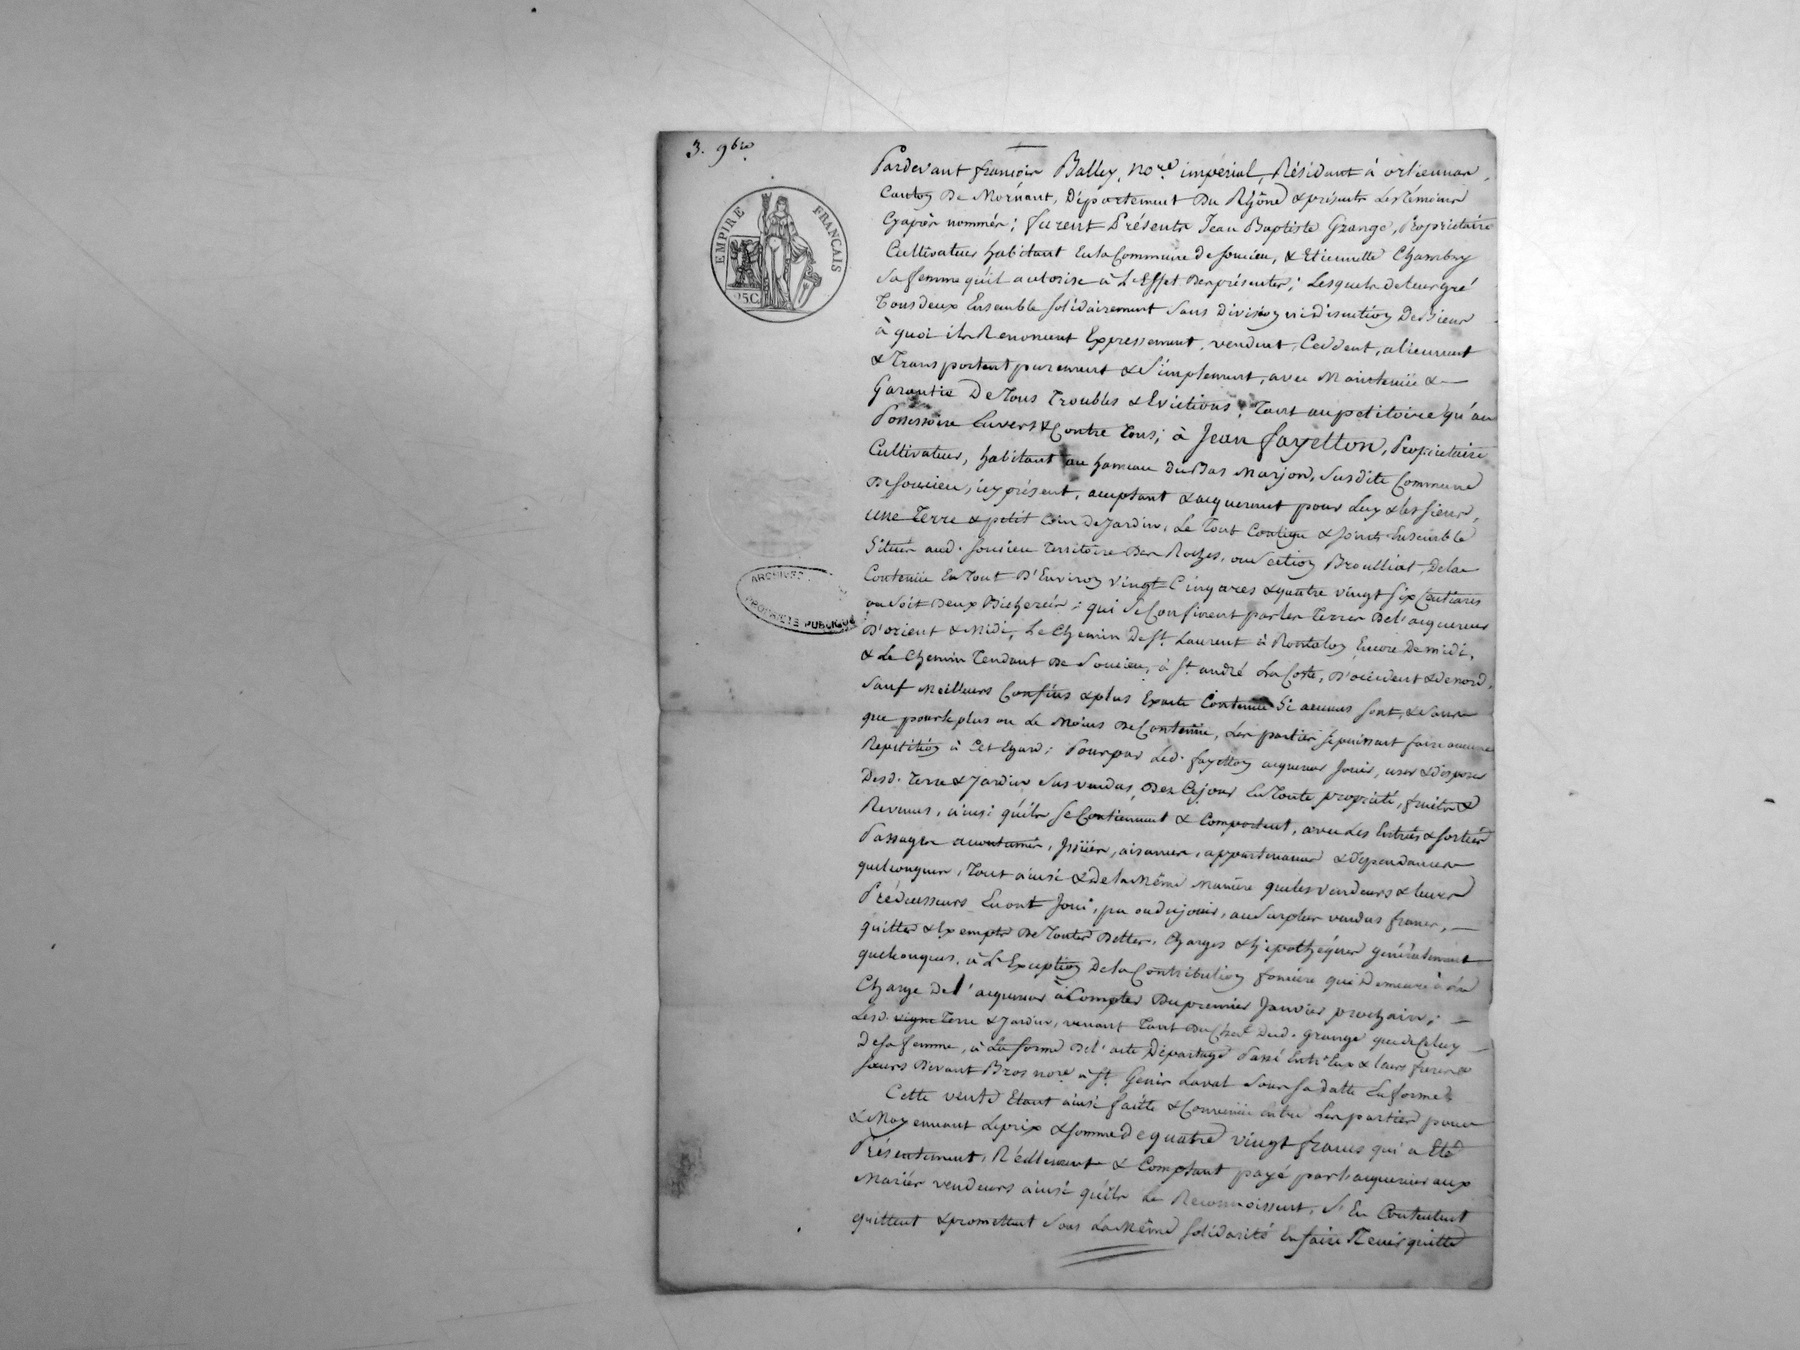 3. 9bre
EMPIRE FRANÇAIS
25C
ARCHIVES
PROPRIÉTÉ PUBLIQUE
Pardevant françois Balley, nore impérial, Résidant à orliennas,
Canton De Mornant, Département Du Rhône & présents Les Témoins
Cyaprès nommés; furent Présents Jean Baptiste Grange, Propriétaire
Cultivateur habitant En la Commune de soucieu, & Etiennette Chambry
Sa femme qu'il autorise à L'Effet Des présentes; Lesquels de leur gré
Tous deux Ensemble solidairement Sans division ni discution De Biens
à quoi ils Renoncent Expressement, vendent, Ceddent, alienent
& Transportent purement & Simplement, avec Maintenüe &
Garantie De Tous Troubles & Evictions, Tant au petitoire qu'au
Possessoire Envers & Contre Tous; à Jean fayetton, Propriétaire
Cultivateur, habitant au hameau du Bas Marjon, Susdite Commune
De Soucieu, icy présent, acceptant & acquerant pour Luy & les siens,
une Terre & petit Coin de Jardin, Le Tout Contigu & Joints Ensemble
Situés aud. Soucieu Territoire Des Roches, ou Section Broulliat, De la
Contenüe En Tout D'Environ vingt Cinq ares & quatre vingt six Centiares
ou Soit Deux Bicherées; qui Se Confinent par les Terres De l'acquereur
D'orient & Midi, Le Chemin De St. Laurent à Rontalon Encore De midi,
& Le Chemin Tendant De Soucieu, à St. andré La Coste, D'occident & de nord,
Sauf Meilleurs Confins & plus Exacte Contenüe Si aucuns sont, & Sans
que pour le plus ou Le Moins De Contenüe, Les parties se puissent faire aucune
Repetition à Cet Egard; Pour par Led. fayetton acquereur Jouir, user & disposer
Desd. Terre & Jardin Sus vendus, Dez Ce jour En Toute propriété, fruits &
Revenus, ainsi qu'ils Se Contiennent & Comportent, avec Les Entrées & sorties
Passages accoutumés, Issües, aisances, appartenances & Dépendances
quelconques, Tout ainsi & De la Même Maniere que les vendeurs & leurs
Prédecesseurs En ont Joui, pu ou du jouir, au Surplus vendus francs,
quittes & Exempts De Toutes Dettes, Charges & hipothéques générallement
quelconques, à L'Exception De la Contribution fonciere qui Demeure à La
Charge De l'acquereur à Compter Du premier Janvier prochain;
Lesd. vigne Terre & Jardin, venant Tant Du Chef Dud. Grange que de Celuy
De Sa femme, à La forme De l'acte De partage Passé Entr'Eux & leurs freres &
Sœurs Devant Bros nore à St. Genis Laval Sous Sa datte En forme.
Cette vente Etant ainsi faitte & Convenüe entre Les parties pour
& Moyennant Le prix & somme de quatre vingt francs qui a Eté
Présentement, Réellement & Comptant payé par l'acquereur aux
Mariés vendeurs ainsi qu'ils Le Reconnoissent, S'En Contentent
quittent & promettent Sous La Même Solidarité En faire Tenir quitte